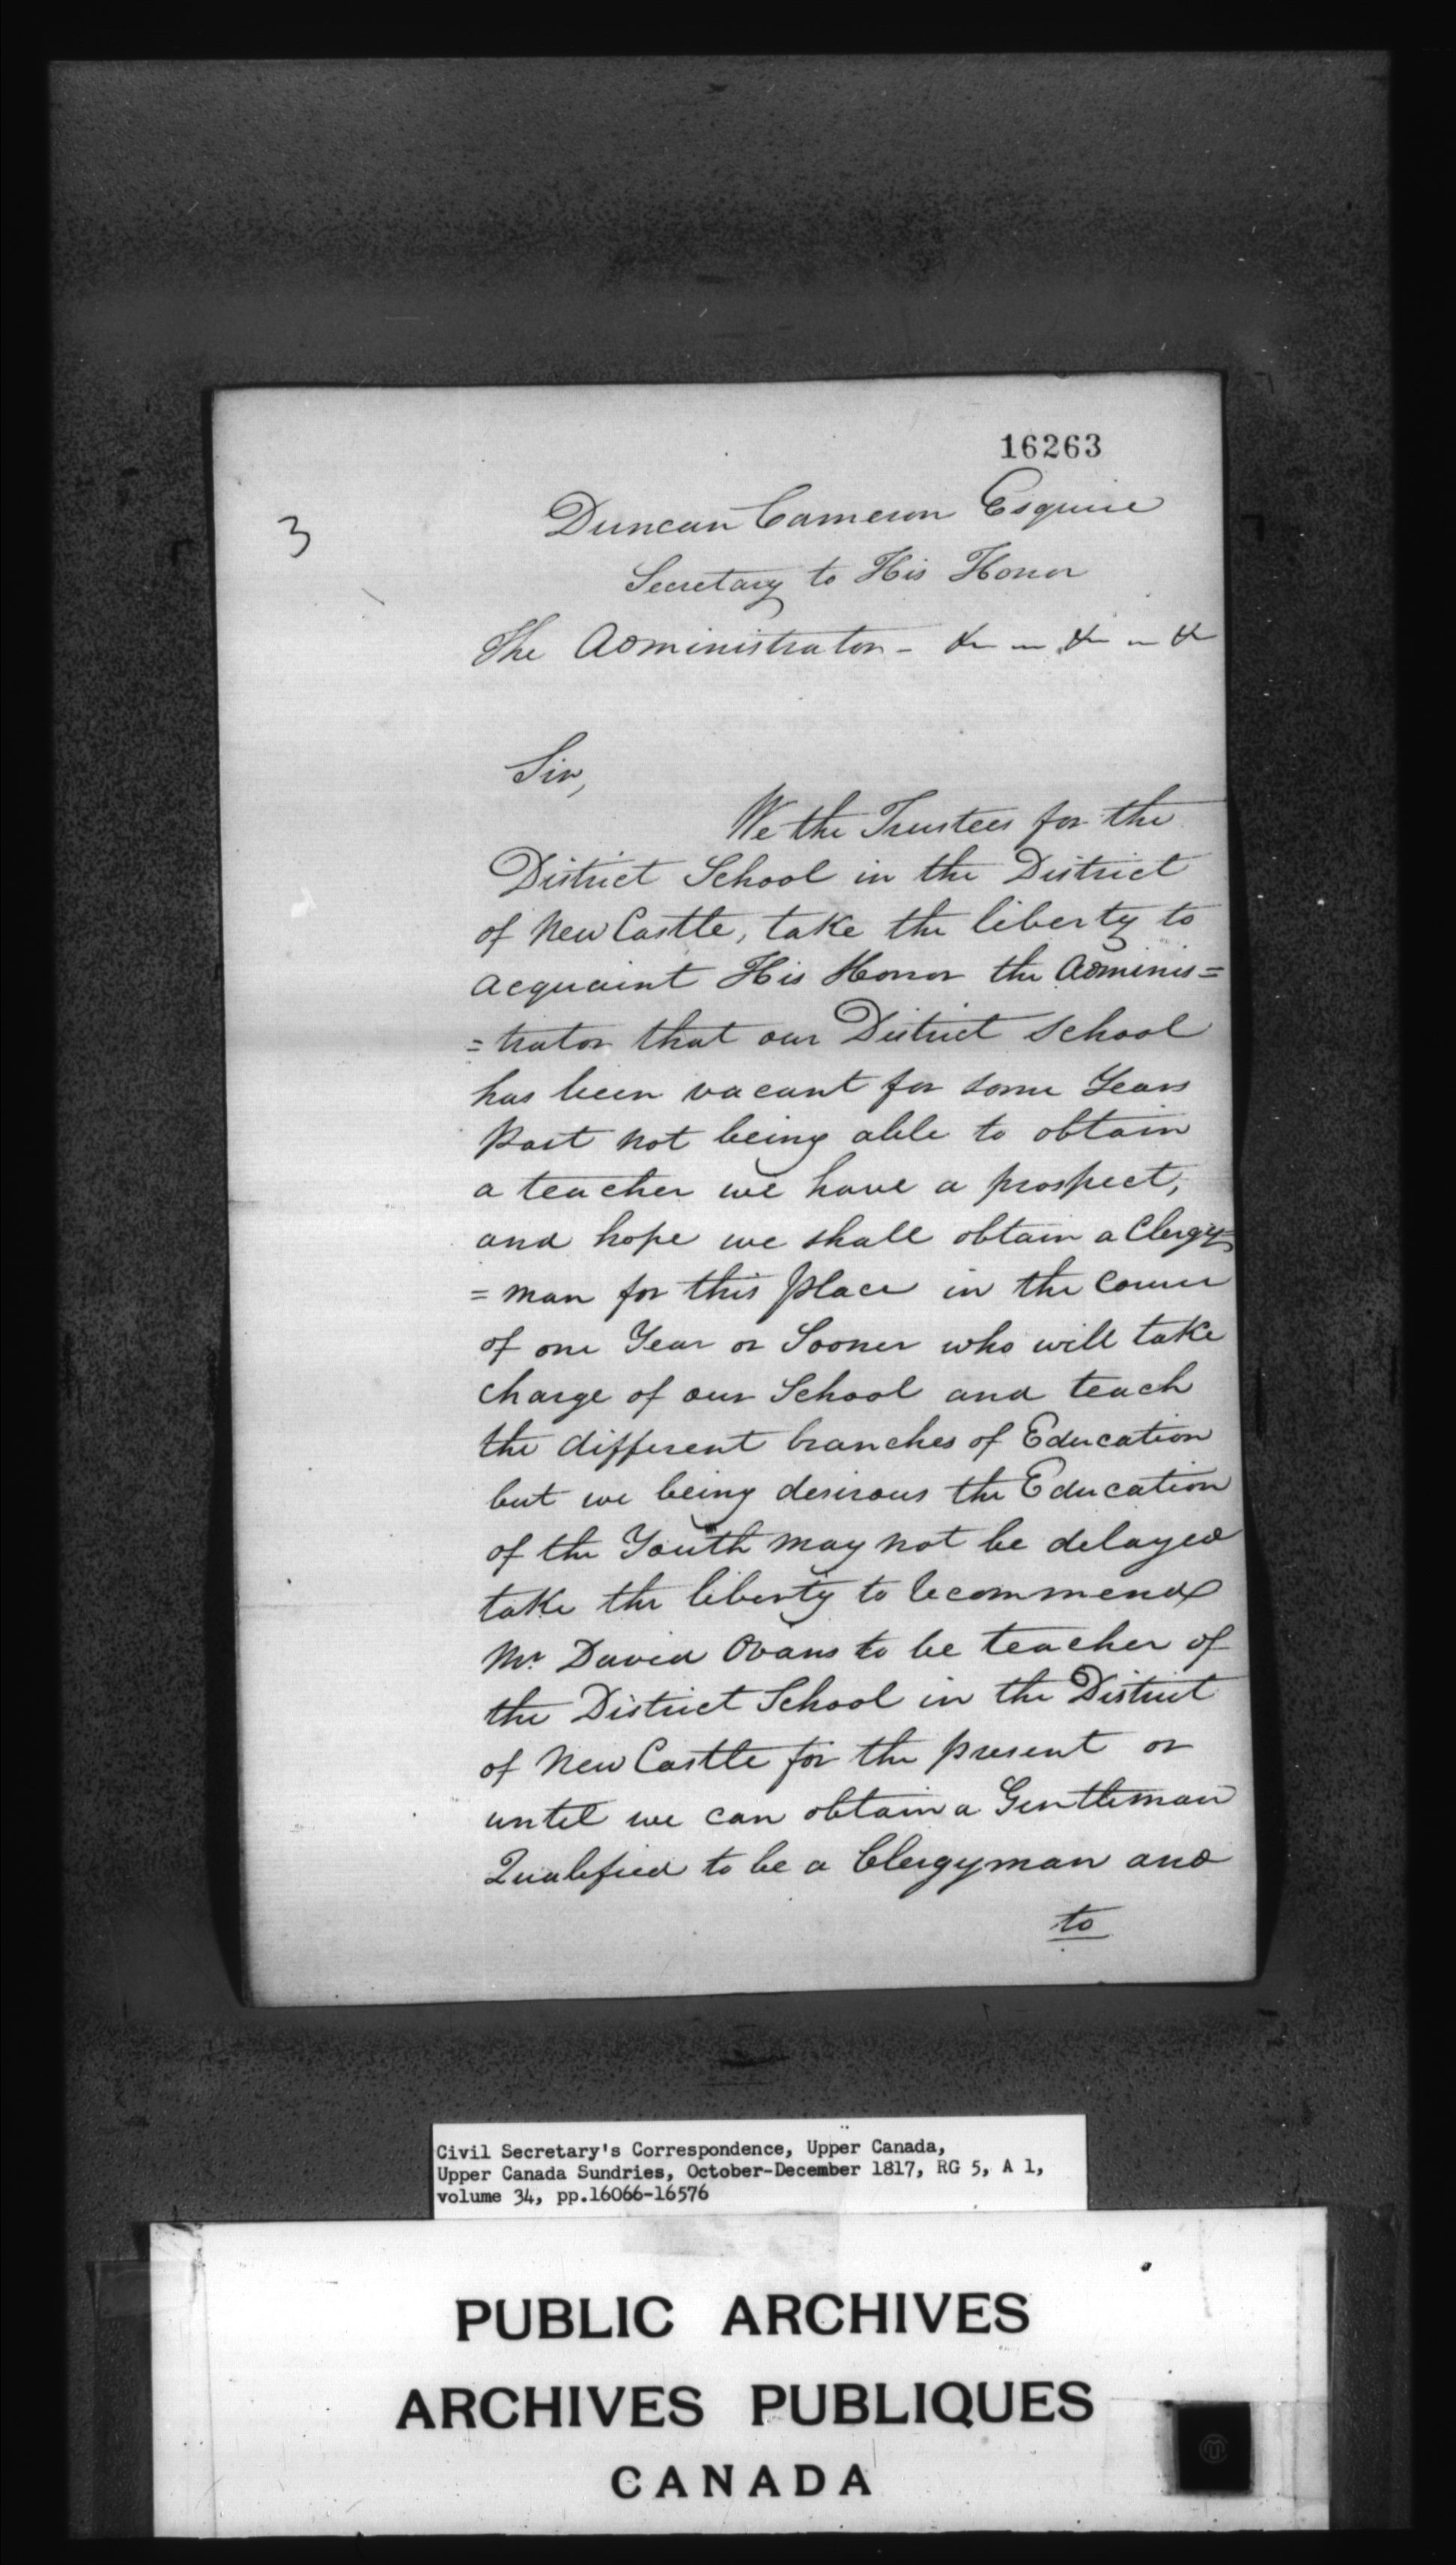 16263
3
Duncan Cameron Esquire
Secretary to His Honor
The Administrator - &c - &c - &c
Sir,
We the Trustees for the
District School in the District
of New Castle, take the liberty to
acquaint His Honor the Adminis=
=trator that our District School
has been vacant for some Years
Past not being able to obtain
a teacher we have a prospect,
and hope we shall obtain a Clergy
=man for this place in the course
of one Year or Sooner who will take
charge of our School and teach
the different branches of Education
but we being desirous the Education
of the Youth may not be delayed
take the liberty to recommend
Mr. David Ovans to be teacher of
the District School in the District
of New Castle for the present or
until we can obtain a Gentleman
Qualified to be a Clergyman and
to
Civil Secretary's Correspondence, Upper Canada,
Upper Canada Sundries, October-December 1817, RG 5, A 1,
volume 34, pp.16066-16576
PUBLIC ARCHIVES
ARCHIVES PUBLIQUES
CANADA